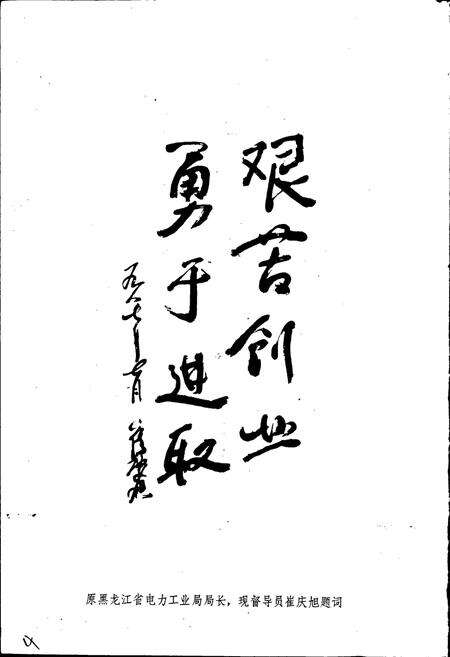 艰苦创业
勇于进取
原黑龙江省电力工业局局长，现督导员崔庆旭题词